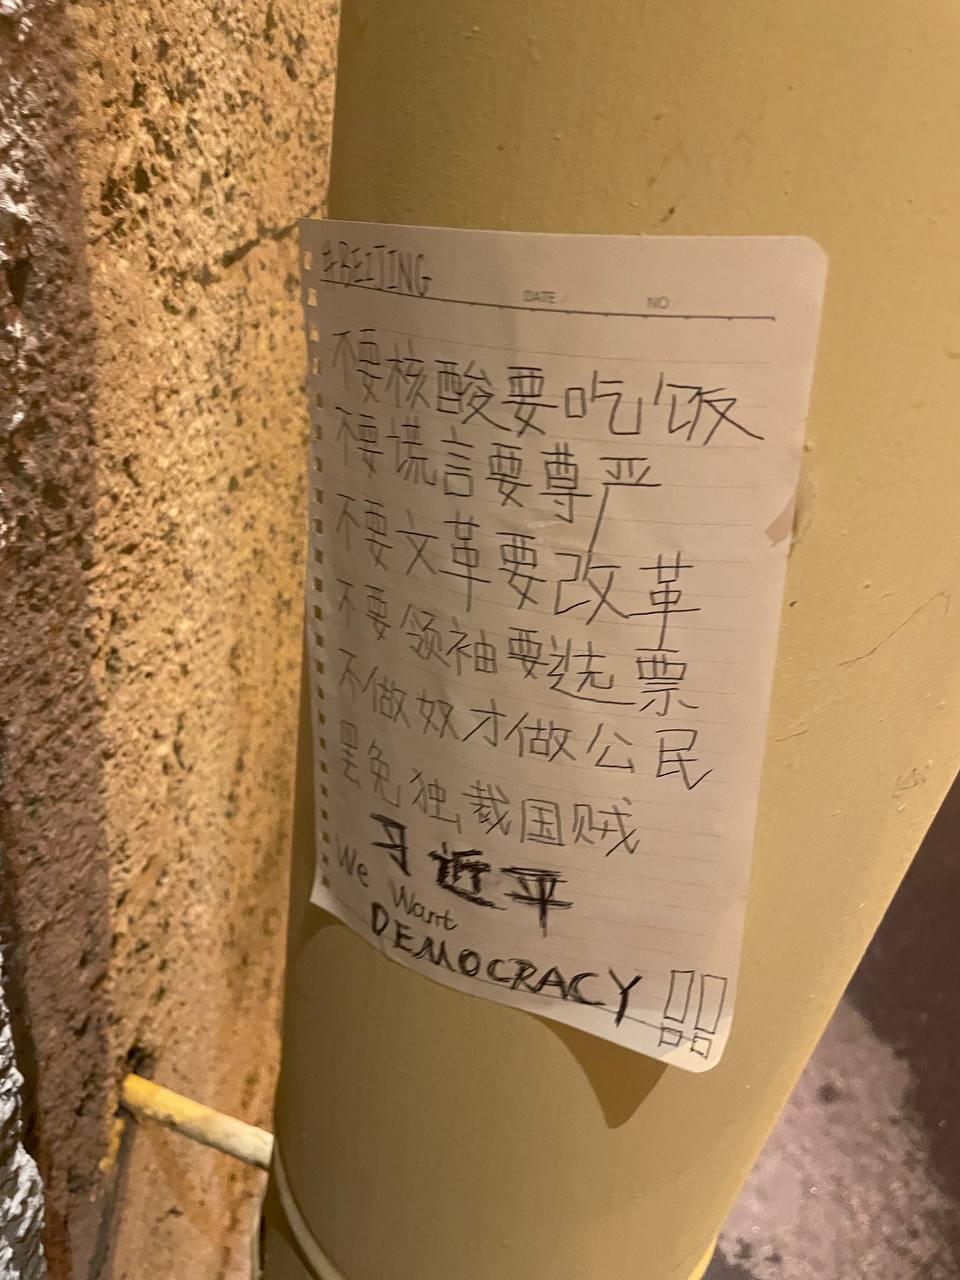 #BEIJING
DATE / NO /
不要核酸要吃饭
不要谎言要尊严
不要文革要改革
不要领袖要选票
不做奴才做公民
罢免独裁国贼
习近平
We Want
DEMOCRACY!!